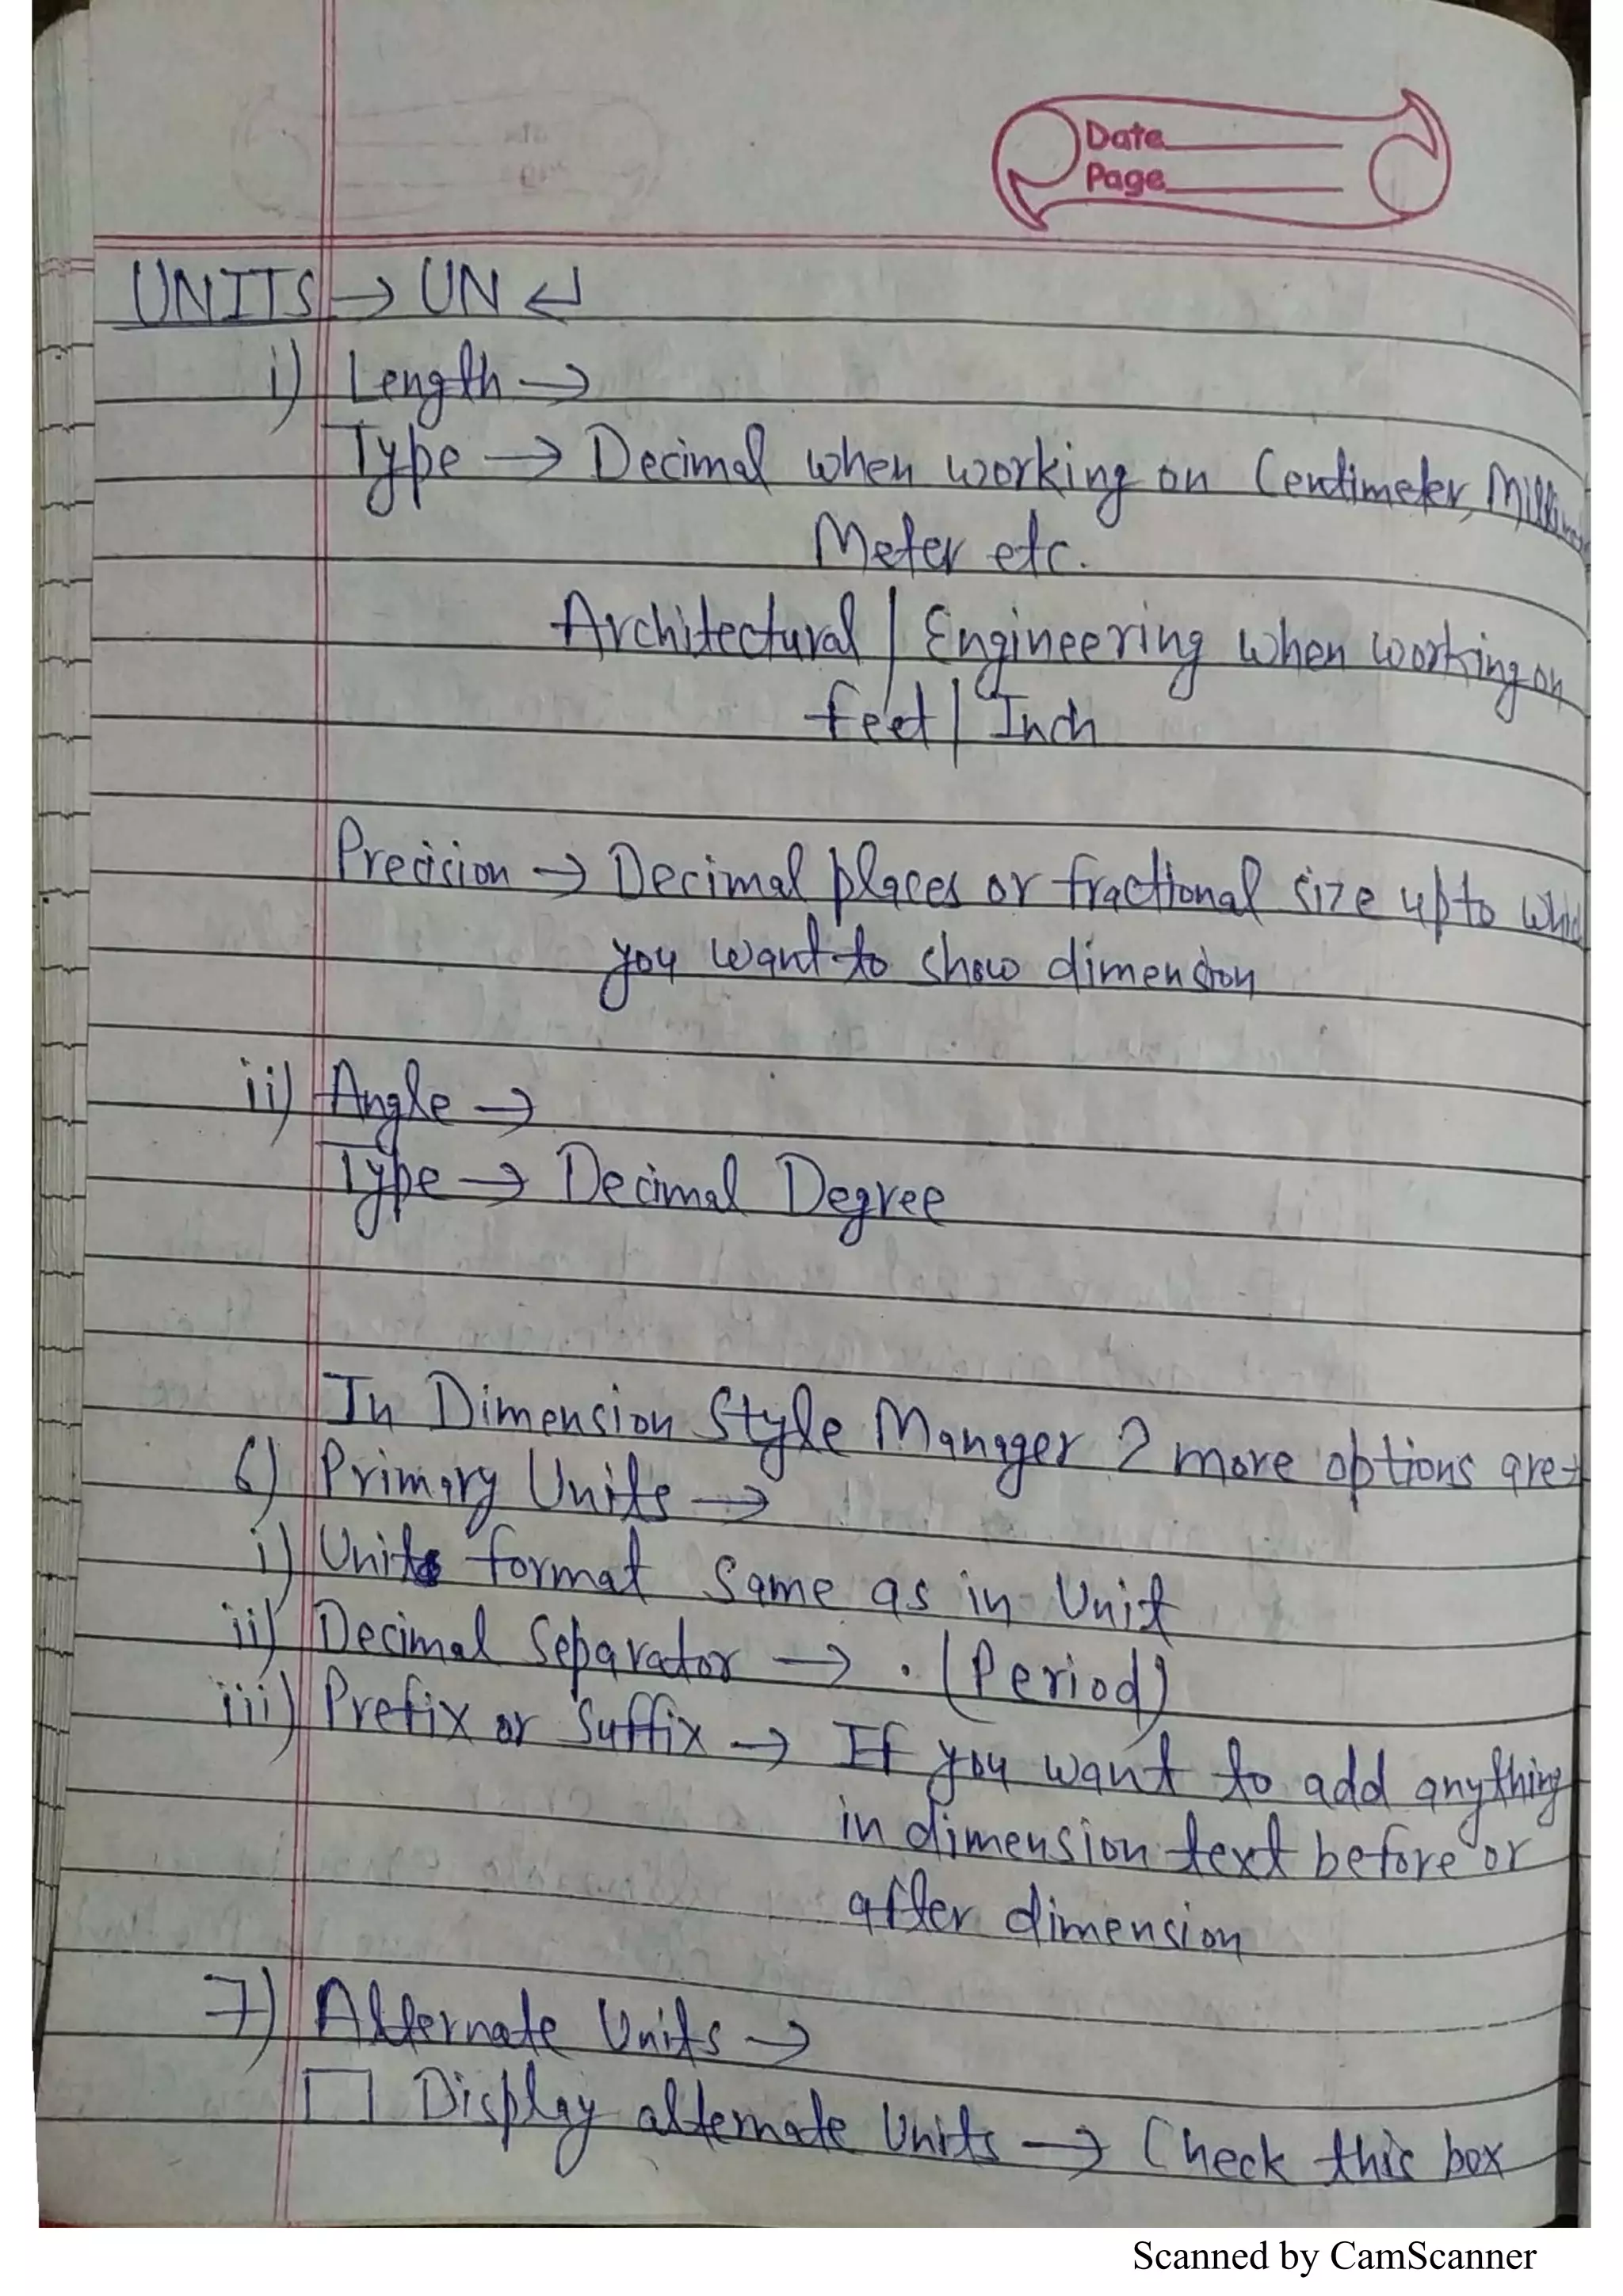 Date
Page
UNITS → UN ↵
i) Length →
Type → Decimal when working on Centimeter,
Meter etc.
Architectural / Engineering when working on
feet / Inch
Precision → Decimal places or fractional size upto
you want to show dimension
ii) Angle →
Type → Decimal Degree
In Dimension Style Manager 2 more options are→
6) Primary Units →
i) Units format same as in Unit
ii) Decimal Separator → . (Period)
iii) Prefix or Suffix → If you want to add anything
in dimension text before or
after dimension
7) Alternate Units →
☐ Display alternate Units → Check this box
Scanned by CamScanner